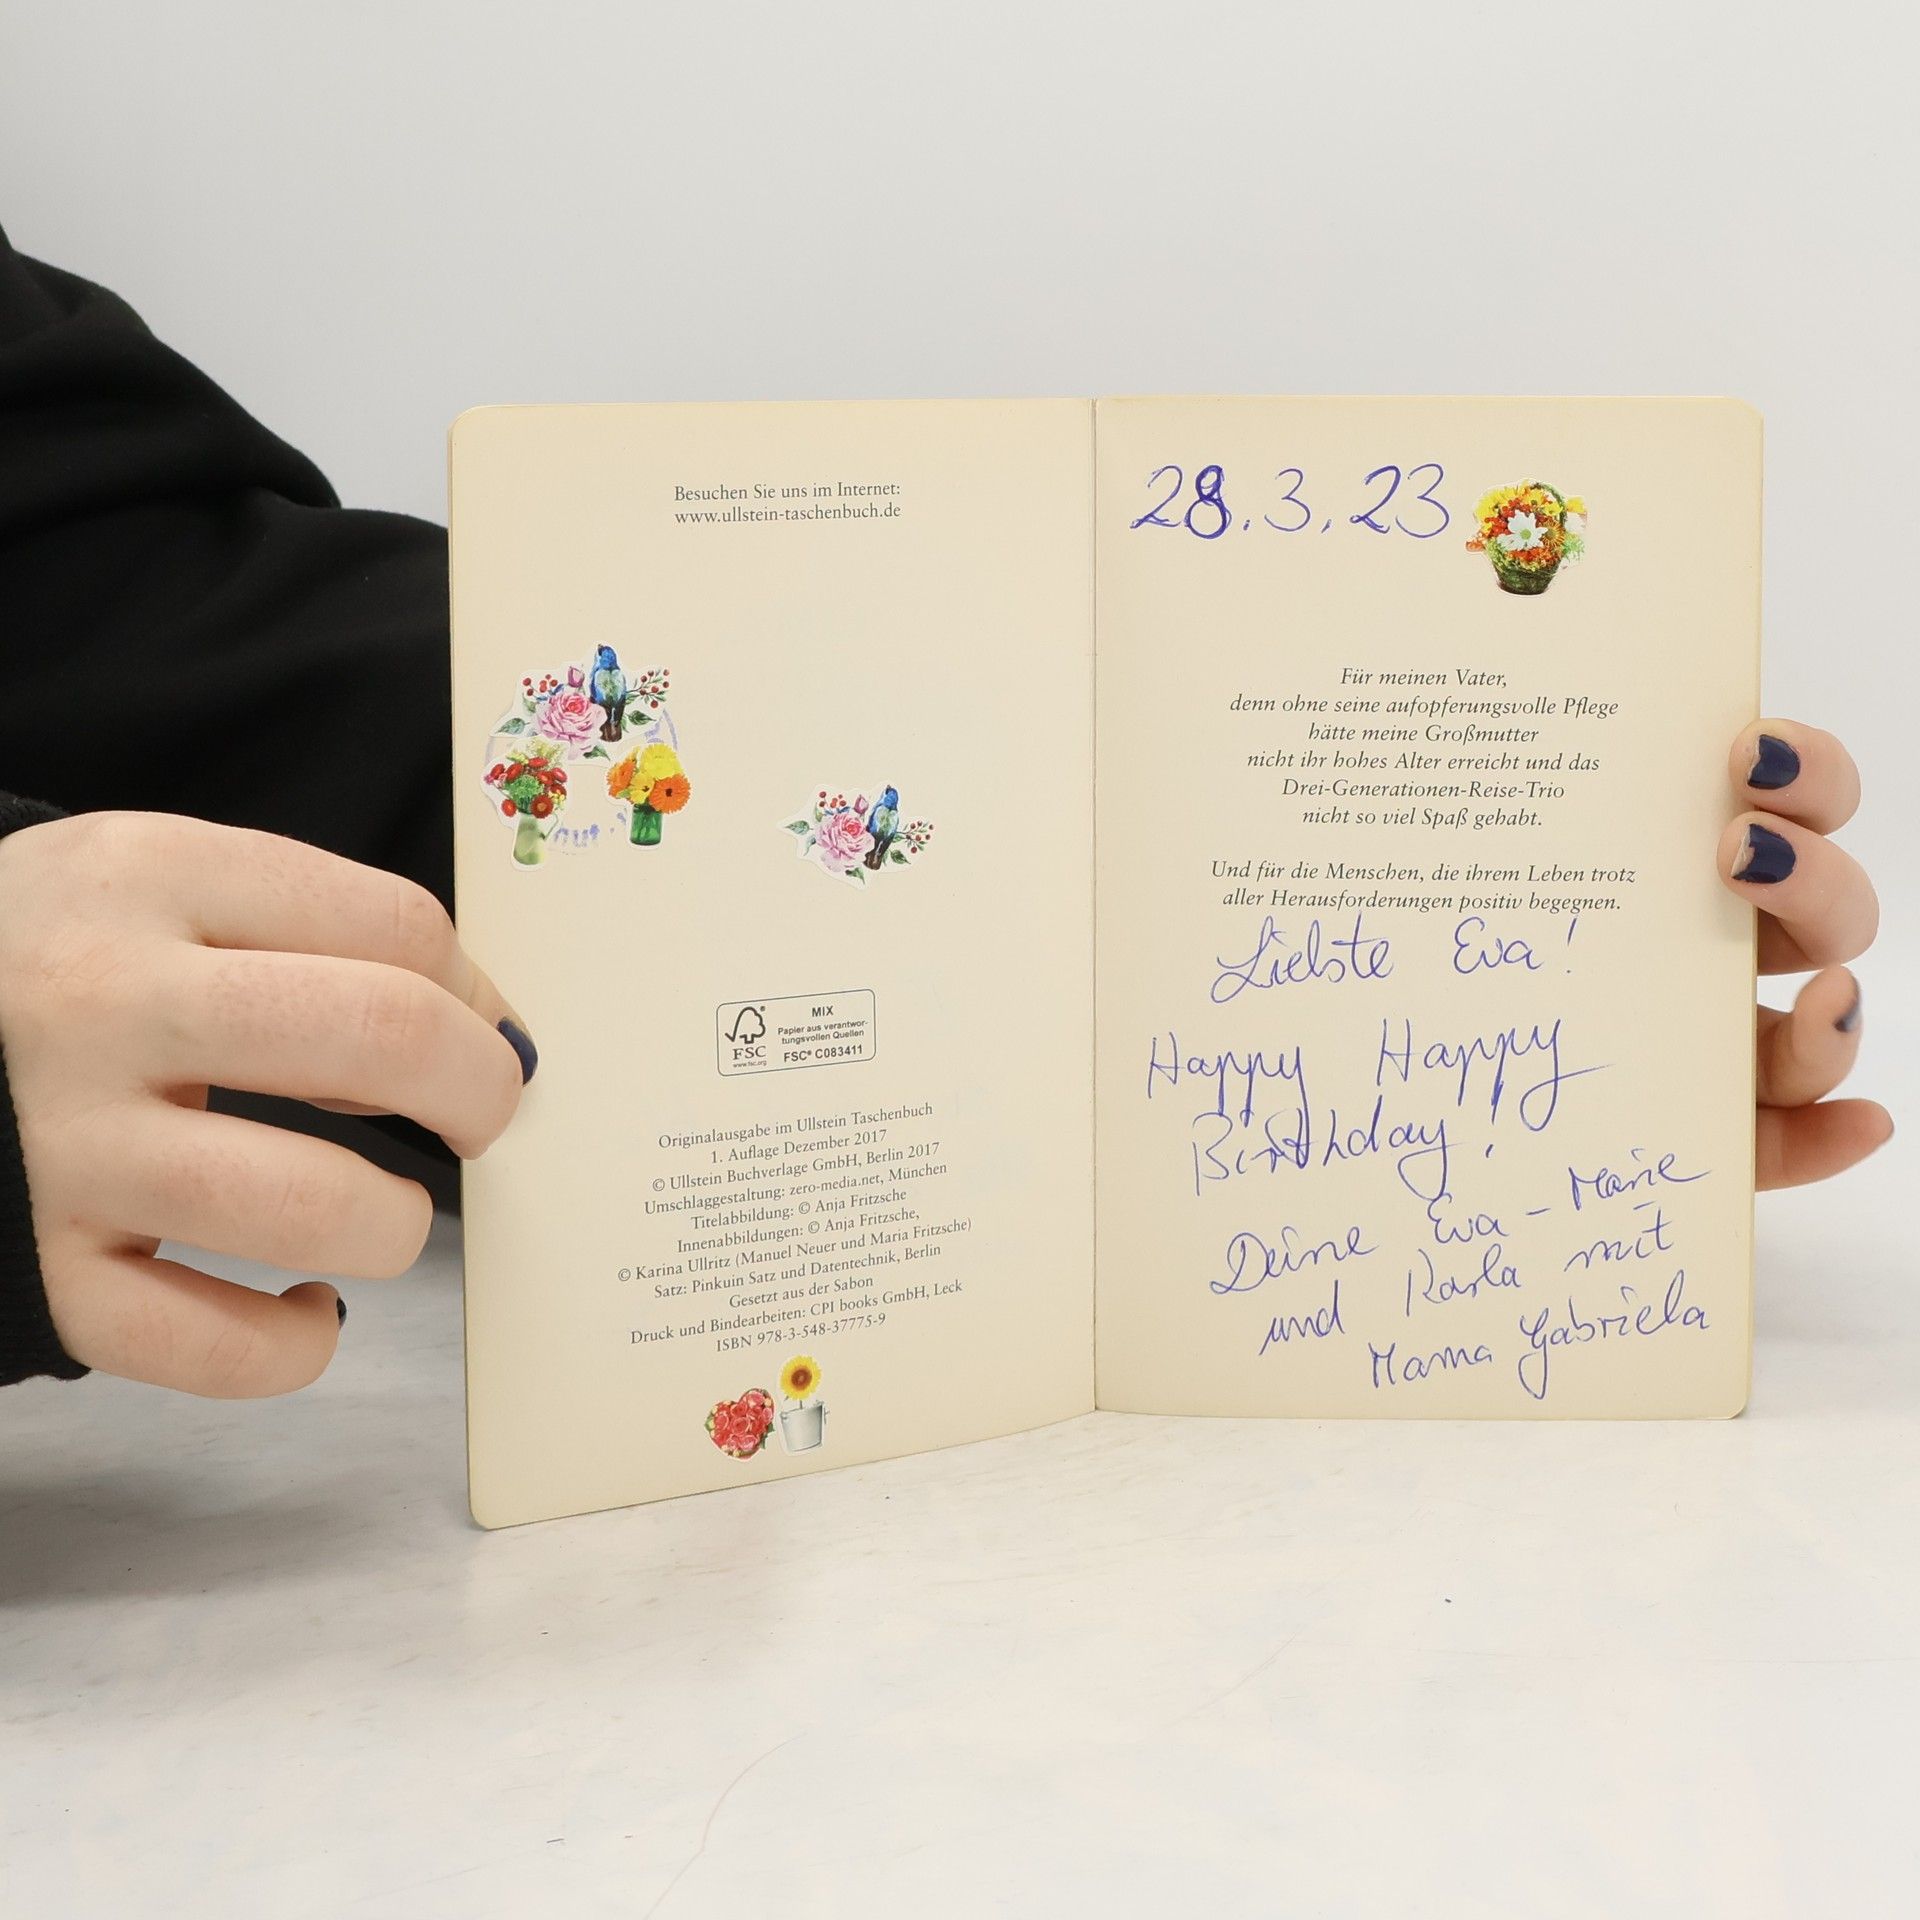 Besuchen Sie uns im Internet:
www.ullstein-taschenbuch.de
MIX
Papier aus verantwor-
tungsvollen Quellen
FSC® C083411
FSC
www.fsc.org
Originalausgabe im Ullstein Taschenbuch
1. Auflage Dezember 2017
© Ullstein Buchverlage GmbH, Berlin 2017
Umschlaggestaltung: zero-media.net, München
Titelabbildung: © Anja Fritzsche
Innenabbildungen: © Anja Fritzsche,
© Karina Ullritz (Manuel Neuer und Maria Fritzsche)
Satz: Pinkuin Satz und Datentechnik, Berlin
Gesetzt aus der Sabon
Druck und Bindearbeiten: CPI books GmbH, Leck
ISBN 978-3-548-37775-9
28.3.23
Für meinen Vater,
denn ohne seine aufopferungsvolle Pflege
hätte meine Großmutter
nicht ihr hohes Alter erreicht und das
Drei-Generationen-Reise-Trio
nicht so viel Spaß gehabt.
Und für die Menschen, die ihrem Leben trotz
aller Herausforderungen positiv begegnen.
Liebste Eva!
Happy Happy
Birthday!
Deine Eva-Marie
und Karla mit
Mama Gabriela